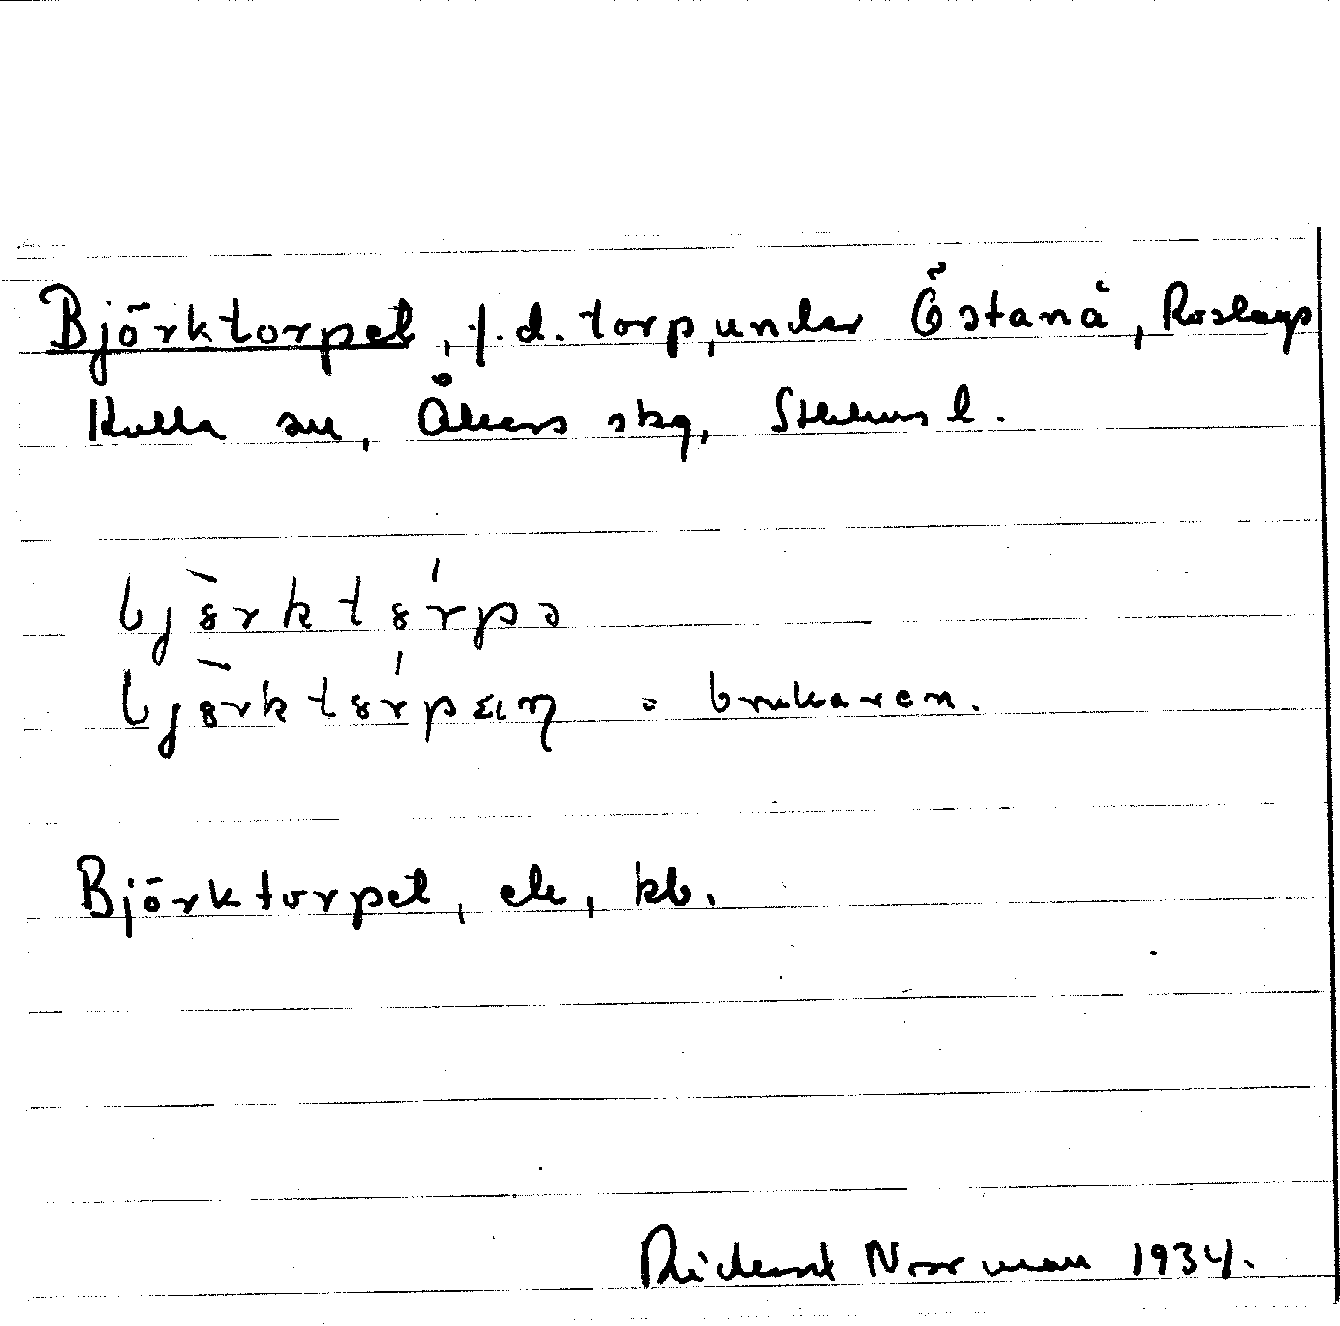 Björktorpet, f.d. torp, under Östanå, Roslags
Kulla sn, Åkers skg, Sthlms l.
bjȣ̀rktȣ́rpə
bjȣ̀rktȣ́rpεıη = brukaren.
Björktorpet, ek, kb.
Rickard Norrman 1934.